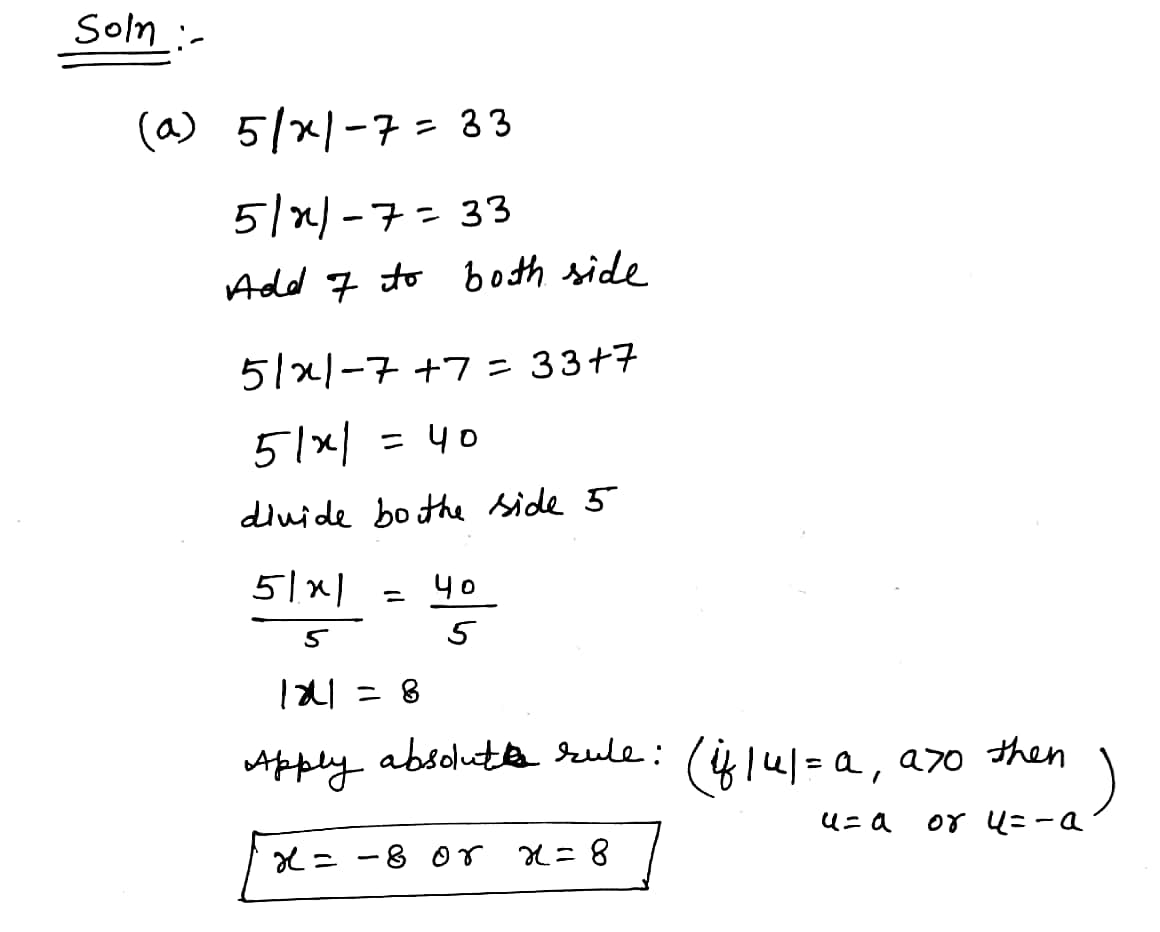 Soln :-
(a) 5|x|-7 = 33
5|x|-7 = 33
Add 7 to both side
5|x|-7 +7 = 33+7
5|x| = 40
divide bothe side 5
5|x|/5 = 40/5
|x| = 8
Apply absolute rule: (if |u|=a, a>0 then
u=a or u=-a)
x = -8 or x = 8